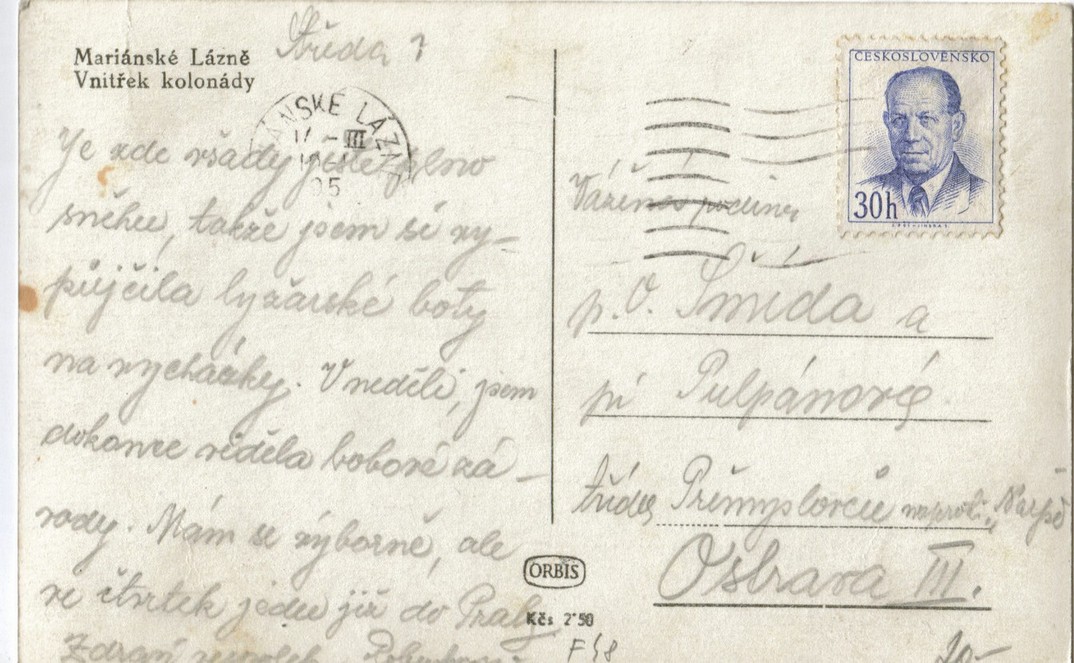 Mariánské Lázně
Vnitřek kolonády
Středa
Je zde všady ještě plno
sněhu, takže jsem si vy-
půjčila lyžařské boty
na vycházky. V neděli, jsem
dokonce viděla bobové zá-
vody. Mám se výborně, ale
ve čtvrtek jedu již do Prahy
Zdraví
ČESKOSLOVENSKO
30h
Vážená rodina
p. O. Šmída a
pí Pulpánové
třída Přemyslovců naproti
Ostrava III.
ORBIS
Kčs 2·50
F48
20-